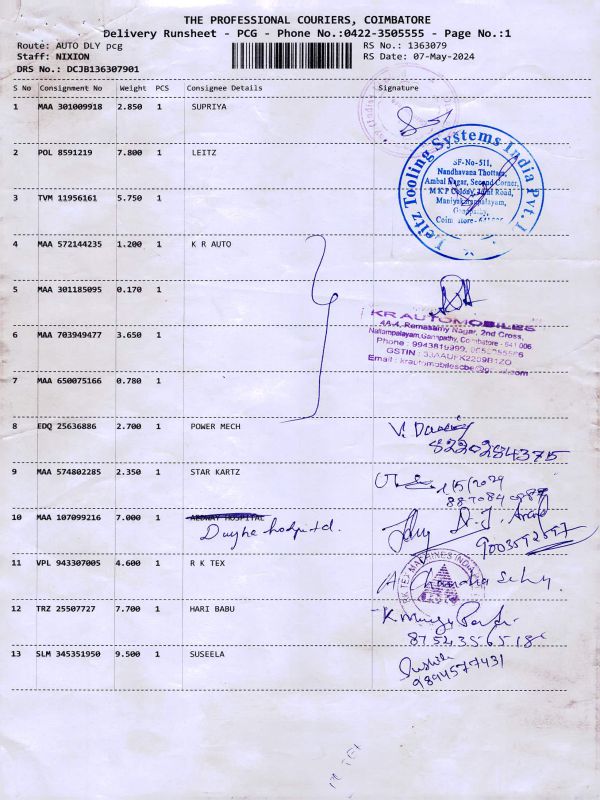 THE PROFESSIONAL COURIERS, COIMBATORE
Delivery Runsheet - PCG - Phone No.:0422-3505555 - Page No.:1
Route: AUTO DLY pcg RS No.: 1363079
Staff: NIXION RS Date: 07-May-2024
DRS No.: DCJB136307901
S No Consignment No Weight PCS Consignee Details Signature
1 MAA 301009918 2.850 1 SUPRIYA
2 POL 8591219 7.800 1 LEITZ
Leitz Tooling Systems India Pvt.
SF-No-511,
Nandhavana Thottam,
Ambal Nagar, Second Corner,
MKP Colony, Road,
3 TVM 11956161 5.750 1
4 MAA 572144235 1.200 1 K R AUTO
5 MAA 301185095 0.170 1
KR AUTOMOBILES
4A-4, Ramasamy Nagar, 2nd Cross,
Nallampalayam, Ganapathy, Coimbatore - 641 006
Phone : 9943819999,
GSTIN :
Email : krautomobilescbe@gmail.com
6 MAA 703949477 3.650 1
7 MAA 650075166 0.780 1
8 EDQ 25636886 2.700 1 POWER MECH
8220284375
9 MAA 574802285 2.350 1 STAR KARTZ
10 MAA 107099216 7.000 1 HOSPITAL
9003592597
11 VPL 943307005 4.600 1 R K TEX
12 TRZ 25507727 7.700 1 HARI BABU
13 SLM 345351950 9.500 1 SUSEELA
9894577431